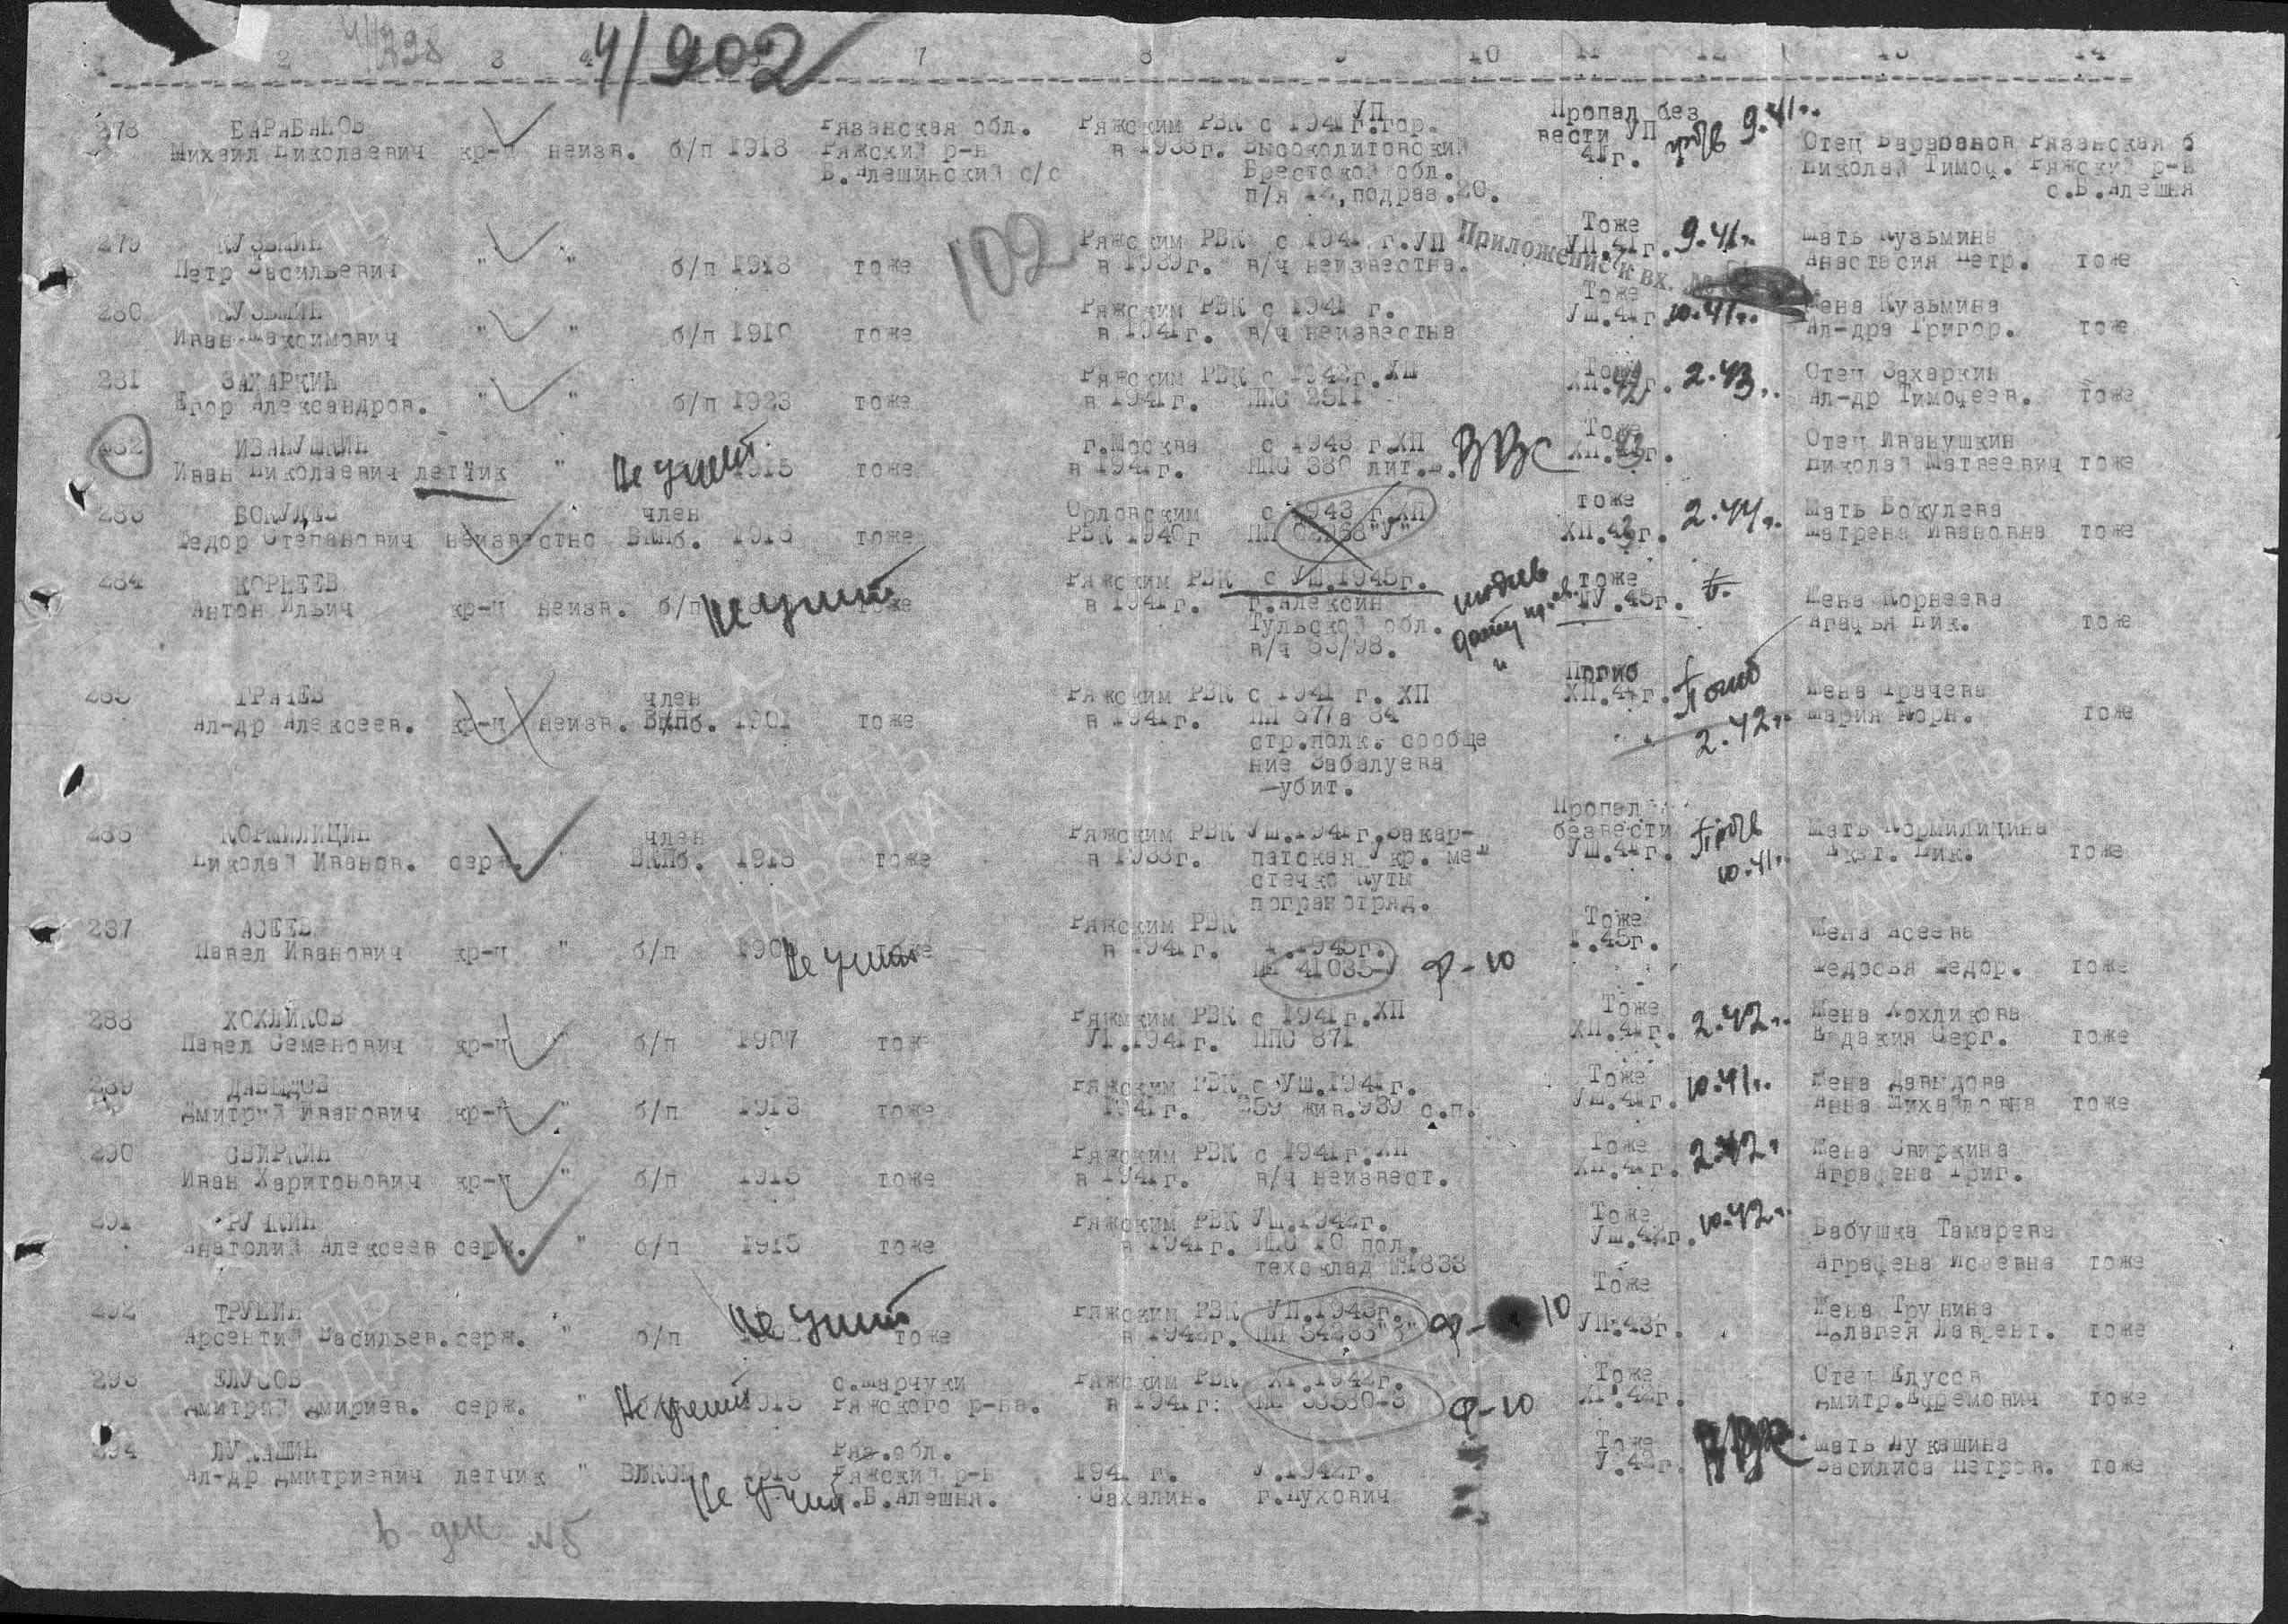 4/398
4/902
2 3 4 7 8 9 10 11 12 13 14
278 БАРАБАНОВ Рязанская обл. Ряжским РВК с 1941 г.гор. УП Пропал без 9.41г.
Михаил Николаевич кр-ц неизв. б/п 1918 Ряжский р-н в 1938г. Высоколитовский вести УП Отец Барабанов Рязанская б
Б.Алешинский с/с Брестской обл. 41г. Николай Тимоф. Ряжский р-н
п/я 12, подраз.20. с.Б.Алешня
102
279 КУЗЬМИН Ряжским РВК с 1941 г.УП Тоже 9.41г. Мать Кузьмина
Петр Васильевич " " б/п 1918 тоже в 1939г. в/ч неизвестна. УП.41г. Анастасия Петр. тоже
Приложение к вх. №
280 КУЗЬМИН Ряжским РВК с 1941 г. Тоже Жена Кузьмина
Иван Максимович " " б/п 1919 тоже в 1941г. в/ч неизвестна УШ.41г. 10.41г. Ал-дра Григор. тоже
281 ЗАХАРКИН Ряжским РВК с 1942г. Тоже 2.43г. Отец Захаркин
Егор Александров. " " б/п 1923 тоже в 1941г. ППС 2511 ХП.42г. Ал-др Тимофеев. тоже
282 ИВАНУШКИН г.Москва с 1943 г.ХП ВВС Тоже Отец Иванушкин
Иван Николаевич летчик " Не учит 1915 тоже в 1941г. ППС 380 лит. ХП.43г. Николай Матвеевич тоже
283 ВОКУЛЕВ член Орловским с 1943 г.ХП тоже 2.44г. Мать Вокулева
Федор Степанович неизвестно ВКПб. 1918 тоже РВК 1940г ПП 02968"У" ХП.43г. Матрена Ивановна тоже
284 КОРНЕЕВ Ряжским РВК с УШ.1945г. тоже
Антон Ильич кр-ц неизв. б/п Не учит тоже в 1941г. г.Алексин 1У.45г. Жена Корнеева
Тульской обл. Агафья Ник. тоже
в/ч 63/98.
285 ГРАЧЕВ член Ряжским РВК с 1941 г. ХП Погиб погиб Жена Грачева
Ал-др Алексеев. кр-ц неизв. ВКПб. 1901 тоже в 1941г. ПП 877а 84 ХП.41г. 2.42г. Мария Корн. тоже
стр.полк. сообще
ние Забалуева
-убит.
286 КОРМИЛИЦИН член Ряжским РВК УШ.1941г.Закар- Пропал
Николай Иванов. серж. " ВКПб. 1918 тоже в 1938г. патская Укр. ме- безвести Мать Кормилицина
стечко Куты УШ.41г. 10.41г. Екат. Ник. тоже
погранотряд.
287 АСЕЕВ Ряжским РВК Тоже Жена Асеева
Павел Иванович кр-ц " б/п Не учит тоже в 1941г. 1.1945г. 1.45г.
ПП 41035-У ф-10 Федосья Федор. тоже
288 ХОХЛИКОВ Ряжским РВК с 1941г.ХП Тоже 2.42г. Жена Хохликова
Павел Семенович кр-ц " б/п 1907 тоже У1.1941г. ППС 871 ХП.41г. Евдакия Серг. тоже
289 ДАВЫДОВ Ряжским РВК с УШ.1941г. Тоже 10.41г. Жена Давыдова
Дмитрий Иванович кр-ц " б/п 1913 тоже 1941г. 259 див.939 с.п. УШ.41г. Анна Михайловна тоже
290 СВИРКИН Ряжским РВК с 1941г.ХП Тоже 2.42г. Жена Свиркина
Иван Харитонович кр-ц " б/п 1915 тоже в 1941г. в/ч неизвест. ХП.41г. Аграфена Григ.
291 РУЧКИН Ряжским РВК УШ.1942г. Тоже 10.42г. Бабушка Тамарева
Анатолий Алексеев серж. " б/п 1915 тоже в 1941г. ППС 10 пол. УШ.42г.
техсклад №1833 Аграфена Исаевна тоже
292 ТРУНИН Ряжским РВК УП.1943г. Тоже Жена Трунина
Арсентий Васильев. серж. " б/п Не учит тоже в 1942г. ПП 54283"В" ф-10 УП.43г. Полагея Лаврент. тоже
293 ЕЛУСОВ с.Марчуки Ряжским РВК Х1.1942г. Тоже Отец Елусов
Дмитрий Дмириев. серж. " Не учит 1915 Ряжского р-на. в 1941г. ПП 33580-З ф-10 Х1.42г. Дмитр.Ефремович тоже
294 ЛУКАШИН Ряз.обл. Тоже ВВС Мать Лукашина
Ал-др Дмитриевич летчик " ВЛКСМ 1918 Ряжский р-н 1941 г. У.1942г. У.42г. Василиса Петров. тоже
Не учит с.Б.Алешня. Сахалин. г.Духович
№5
ПАМЯТЬ НАРОДА